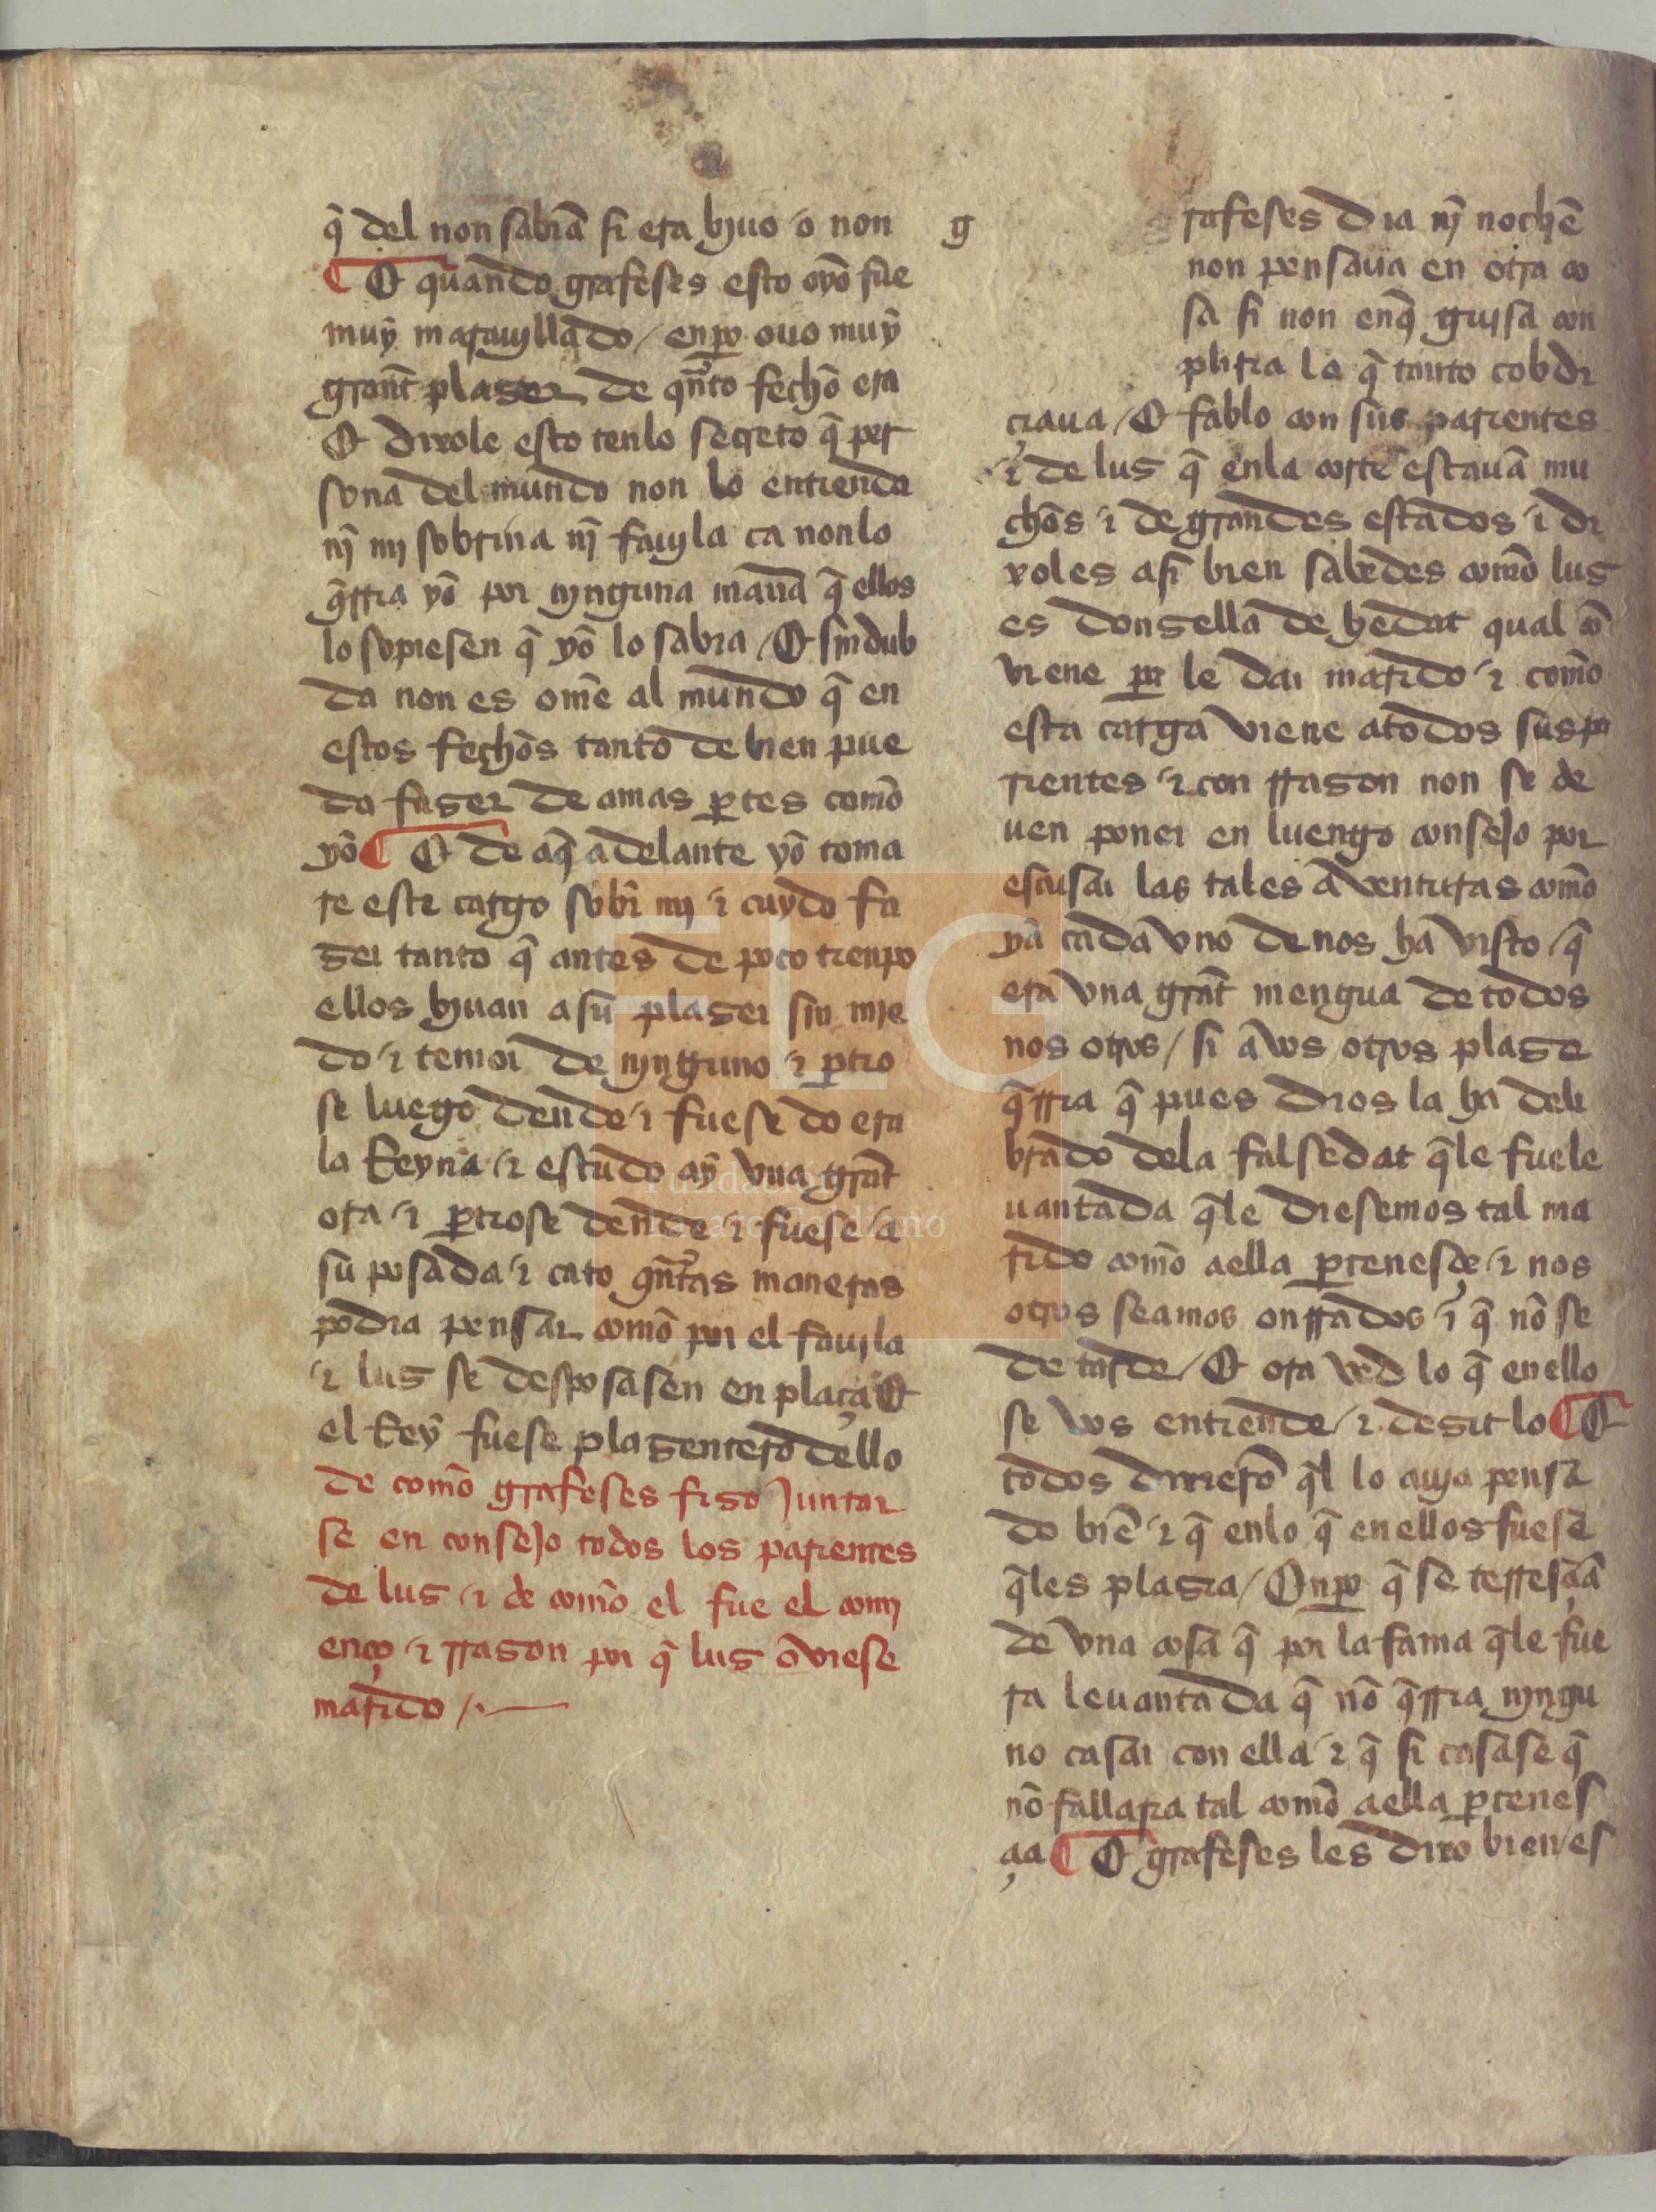 q̃ del non sabiã si era biuo o non
¶ E quando grafeses esto oyo fue
muy marauillado / enp̱o ouo muy
grant̃ plaser de qñto fecho era
E dixole esto tenlo secreto q̃ per
sona del mundo non lo entienda
nj̃ mj sobrina nj̃ fauila ca nonlo
q̃rria yo por njnguna mañã q̃ ellos
lo sopiesen q̃ yo lo sabia / E sin dub
da non es ome al mundo q̃ en
estos fechos tanto de bien pue
da faser de amas p̱tes como
yo ¶ E de aq̃ adelante yo toma
re este cargo sobr̃ mj ⁊ cuydo fa
ser tanto q̃ antes de poco tienpo
ellos biuan a su plaser sin mie
do ⁊ temor de njnguno ⁊ p̱tio
se luego dende ⁊ fuese do era
la Reyna ⁊ estudo ay vna grãt
ora ⁊ p̱tiose dende ⁊ fuese a
su posada ⁊ cato qñtas maneras
podia pensar como por el fauila
⁊ lus se desposasen en plaça E
el Rey fuese plasentero dello
de como grafeses fiso Juntar
se en consejo todos los parientes
de lus ⁊ de como el fue el comj
enço ⁊ rrason por q̃ lus ouiese
marido /.
g
rafeses dia nj̃ noche
non pensaua en otra co
sa si non enq̃ guisa con
pliria lo q̃ tanto cobdi
çiaua / E fablo con sus parientes
⁊ de lus q̃ enla corte estauã mu
chos ⁊ de grandes estados ⁊ di
xoles asi bien sabedes como lus
es donsella de hedat qual cõ
viene p̱a le dar marido ⁊ como
esta carga viene atodos sus pa
rientes ⁊ con rrason non se de
uen poner en luengo consejo por
escusar las tales aventuras como
ya cada vno de nos ha visto / q̃
era vna grãt mengua de todos
nos otros / si a vos otros plase
q̃rria q̃ pues dios la ha deli
brado dela falsedat q̃le fue le
uantada q̃le diesemos tal ma
rido como aella p̱tenesçe ⁊ nos
otros seamos onrrados ⁊ q̃ nõ se
de tarde / E ora ved lo q̃ en ello
se vos entiende ⁊ desit lo ¶ E
todos dixierõ q̃l lo auja pensa
do biẽ ⁊ q̃ enlo q̃ en ellos fuese
q̃les plasia / Enp̱o q̃ se terresçiã
de vna cosa q̃ por la fama q̃le fue
ra leuantada q̃ nõ q̃rria njngu
no casar con ella ⁊ q̃ si casase q̃
nõ fallaria tal como aella p̱tenes
çia ¶ E grafeses les dixo bien es
ELG